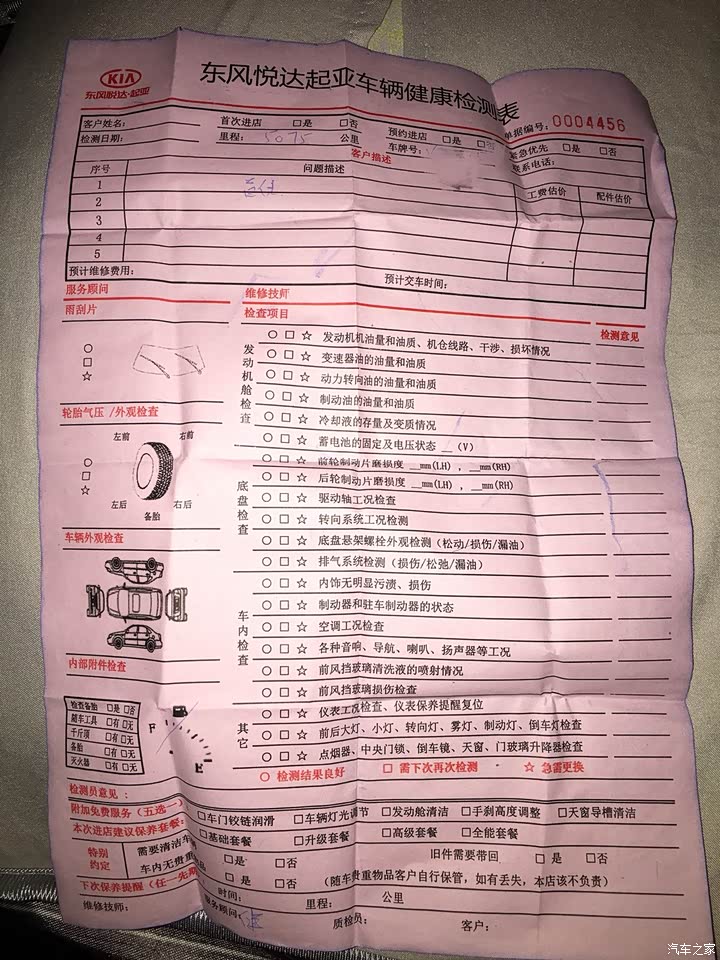 KIA
东风悦达·起亚
东风悦达起亚车辆健康检测表
单据编号：0004456
客户姓名： 首次进店 □是 □否 预约进店 □是 □否 紧急优先 □是 □否
检测日期： 里程：5075 公里 车牌号： 联系电话：
客户描述
序号 问题描述 工费估价 配件估价
1 首保
2
3
4
5
预计维修费用： 预计交车时间：
服务顾问 维修技师
雨刮片 检查项目 检测意见
○
□
☆
轮胎气压/外观检查
左前 右前
○
□
☆
左后 右后
备胎
车辆外观检查
内部附件检查
检查备胎 □是 □否
随车工具 □有 □无
千斤顶 □有 □无
备胎 □有 □无
灭火器 □有 □无
F
E
发动机舱检查
○ □ ☆ 发动机机油量和油质、机仓线路、干涉、损坏情况
○ □ ☆ 变速器油的油量和油质
○ □ ☆ 动力转向油的油量和油质
○ □ ☆ 制动油的油量和油质
○ □ ☆ 冷却液的存量及变质情况
○ □ ☆ 蓄电池的固定及电压状态 __（V）
底盘检查
○ □ ☆ 前轮制动片磨损度 __mm(LH)，__mm(RH)
○ □ ☆ 后轮制动片磨损度 __mm(LH)，__mm(RH)
○ □ ☆ 驱动轴工况检查
○ □ ☆ 转向系统工况检测
○ □ ☆ 底盘悬架螺栓外观检测（松动/损伤/漏油）
○ □ ☆ 排气系统检测（损伤/松弛/漏油）
车内检查
○ □ ☆ 内饰无明显污渍、损伤
○ □ ☆ 制动器和驻车制动器的状态
○ □ ☆ 空调工况检查
○ □ ☆ 各种音响、导航、喇叭、扬声器等工况
○ □ ☆ 前风挡玻璃清洗液的喷射情况
○ □ ☆ 前风挡玻璃损伤检查
其它
○ □ ☆ 仪表工况检查、仪表保养提醒复位
○ □ ☆ 前后大灯、小灯、转向灯、雾灯、制动灯、倒车灯检查
○ □ ☆ 点烟器、中央门锁、倒车镜、天窗、门玻璃升降器检查
○ 检测结果良好 □ 需下次再次检测 ☆ 急需更换
检测员意见：
附加免费服务（五选一） □车门铰链润滑 □车辆灯光调节 □发动舱清洁 □手刹高度调整 □天窗导槽清洁
本次进店建议保养套餐： □基础套餐 □升级套餐 □高级套餐 □全能套餐
特别约定 需要清洁车 □是 □否 旧件需要带回 □是 □否
车内无贵重品 □是 □否 （随车贵重物品客户自行保管，如有丢失，本店该不负责）
下次保养提醒（任一先 时间： 里程： 公里
维修技师： 服务顾问： 质检员： 客户：
汽车之家